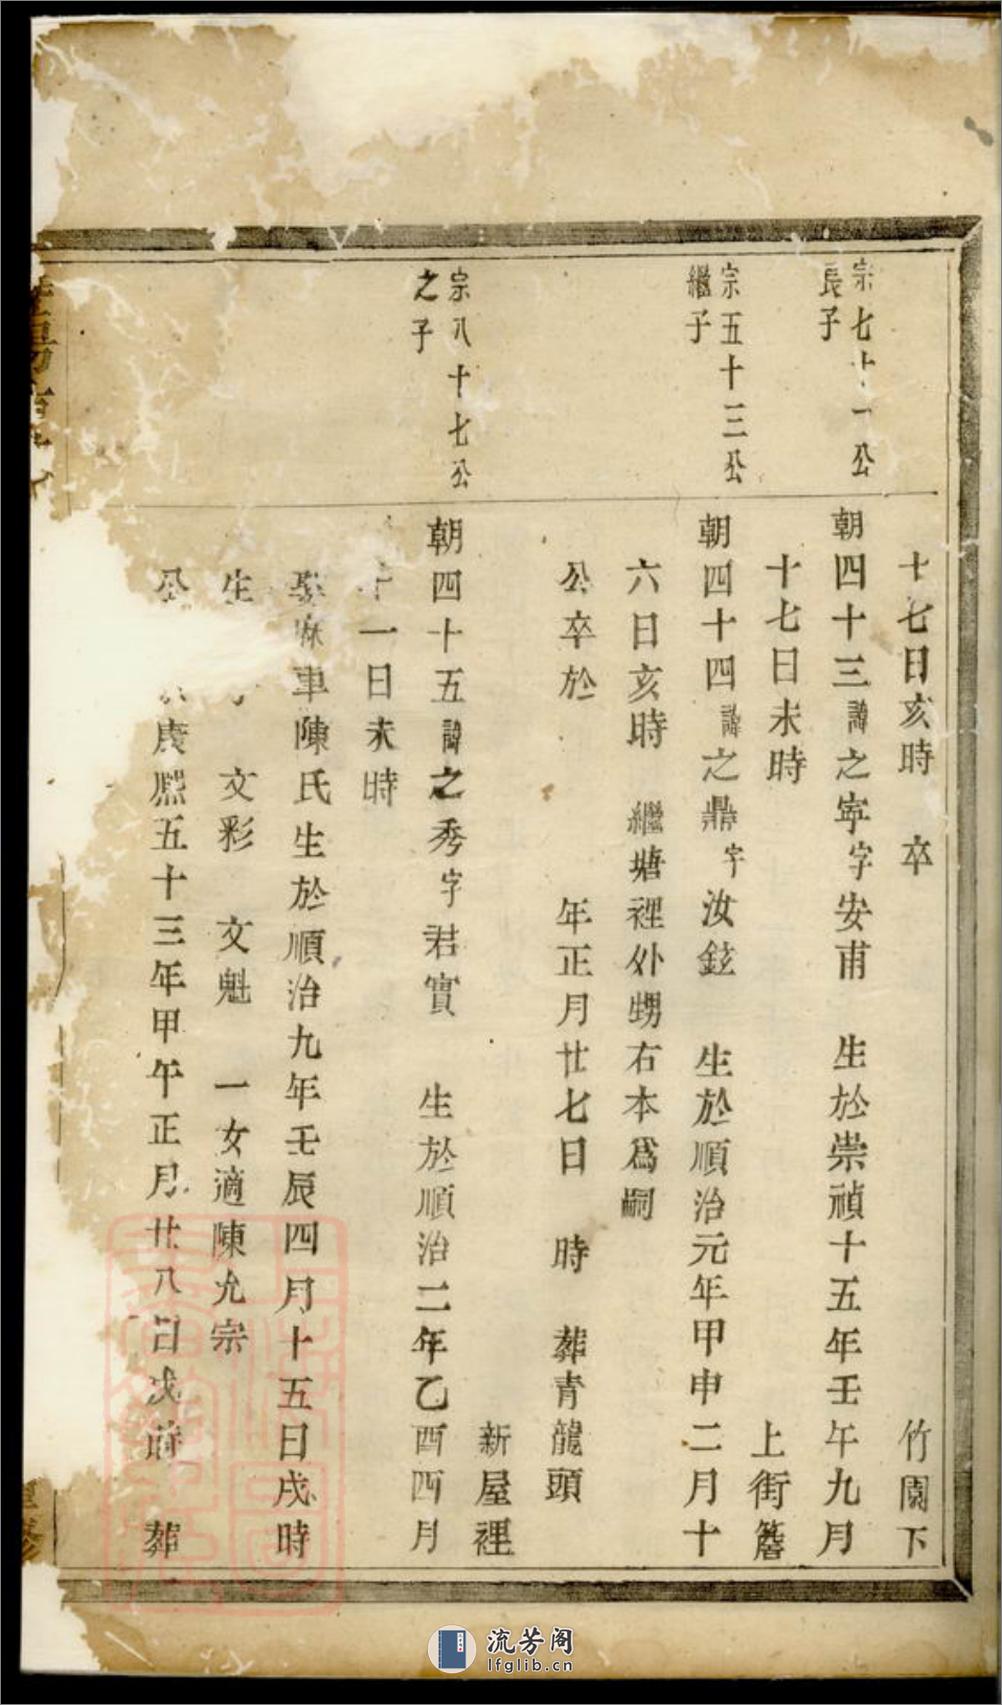 十七日亥時 卒 竹園下
宗七十一公
長子
朝四十三諱之寧字安甫 生於崇禎十五年壬午九月
十七日未時 上街簷
宗五十三公
繼子
朝四十四諱之鼎字汝鉉 生於順治元年甲申二月十
六日亥時 繼塘裡外甥右本爲嗣
公卒於 年正月廿七日 時 葬青龍頭
新屋裡
宗八十七公
之子
朝四十五諱之秀字君實 生於順治二年乙酉四月
十一日未時
娶麻車陳氏生於順治九年壬辰四月十五日戌時
生 文彩 文魁 一女適陳允宗
公 康熙五十三年甲午正月廿八日戌時 葬
流芳阁
lfglib.cn